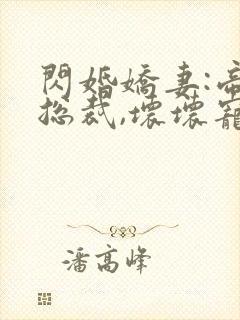 閃婚嬌妻:帝
總裁,壞壞寵
潘高峰